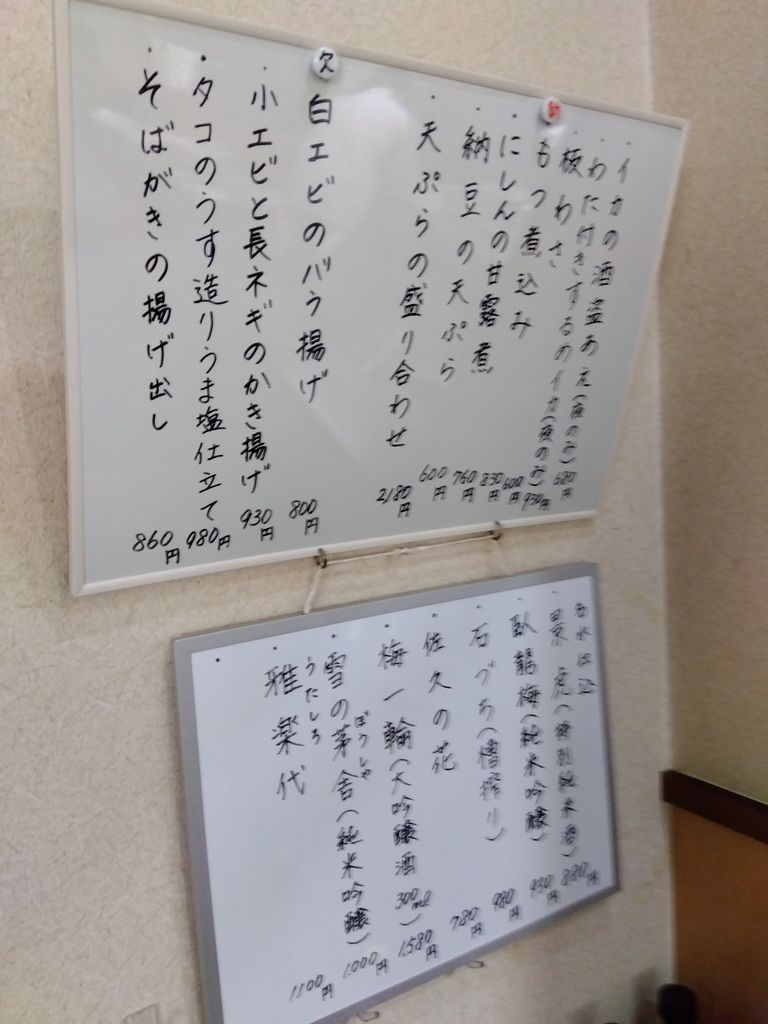 ・イカの酒盗あえ(夜のみ) 680円
・わた付きするめイカ(夜のみ) 930円
・板わさ 600円
新
・もつ煮込み 830円
・にしんの甘露煮 760円
・納豆の天ぷら 600円
・天ぷらの盛り合わせ 2,180円
欠
白エビのバラ揚げ 800円
・小エビと長ネギのかき揚げ 930円
・タコのうす造りうま塩仕立て 980円
・そばがきの揚げ出し 860円
・景虎(特別純米酒) 880円
・臥龍梅(純米吟醸) 930円
・石づち(槽搾り) 980円
・佐久の花 780円
・梅一輪(大吟醸酒 300ml) 1,580円
・雪の茅舎(純米吟醸) 1,000円
ぼうしゃ
・雅楽代 1,100円
うたしろ